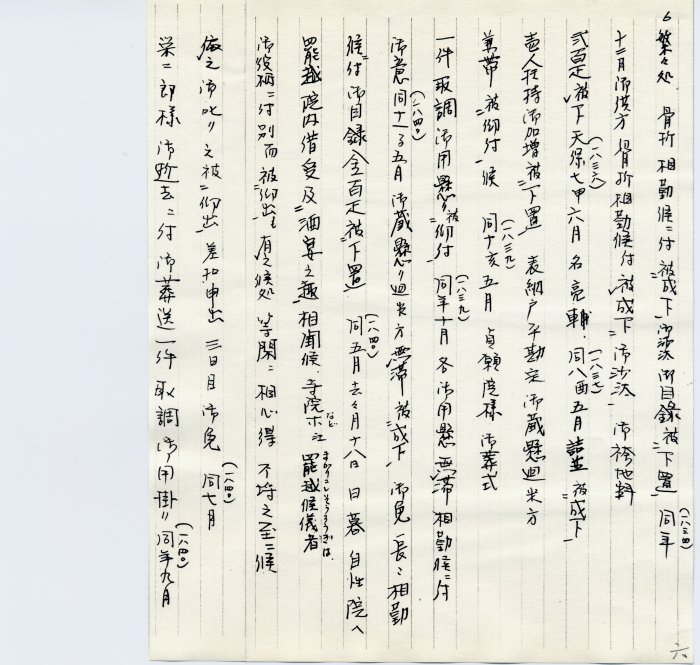 6
繁々処 骨折相勤候ニ付 被成下御沙汰御目録被下置 同年(一八三四)
十二月御供方 骨折相勤候付 被成下 御沙汰 御袴地料
弐百疋被下 天保七甲六月(一八三六) 名亮輔、同八酉五月(一八三七) 詰並被成下
壱人扶持御加増被下置 表納戸平勘定御蔵懸廻米方
兼帯被仰付候 同十亥五月(一八三九) 貞願院様 御葬式
一件取調御用懸り被仰付 同年十月(一八三九) 各御用懸無滞相勤候ニ付
御意同十一子五月(一八四〇) 御蔵懸り廻米方無滞被成下 御免 長々相勤
候ニ付御目録金百疋被下置 同五月(一八四〇) 去々月十八日 日暮 自性院へ
罷越院内借受及酒宴之趣相聞候、寺院ホ江(など) 罷越候儀者(まかりこしそうろうぎは、)
御役柄ニ付別而被仰出も有之候処 等閑ニ相心得 不埒之至ニ候
依之御叱り之被仰出 差扣申出 三日目御免 同七月(一八四〇)
栄二郎様 御逝去ニ付 御葬送一件 取調御用掛リ 同年九月(一八四〇)
六